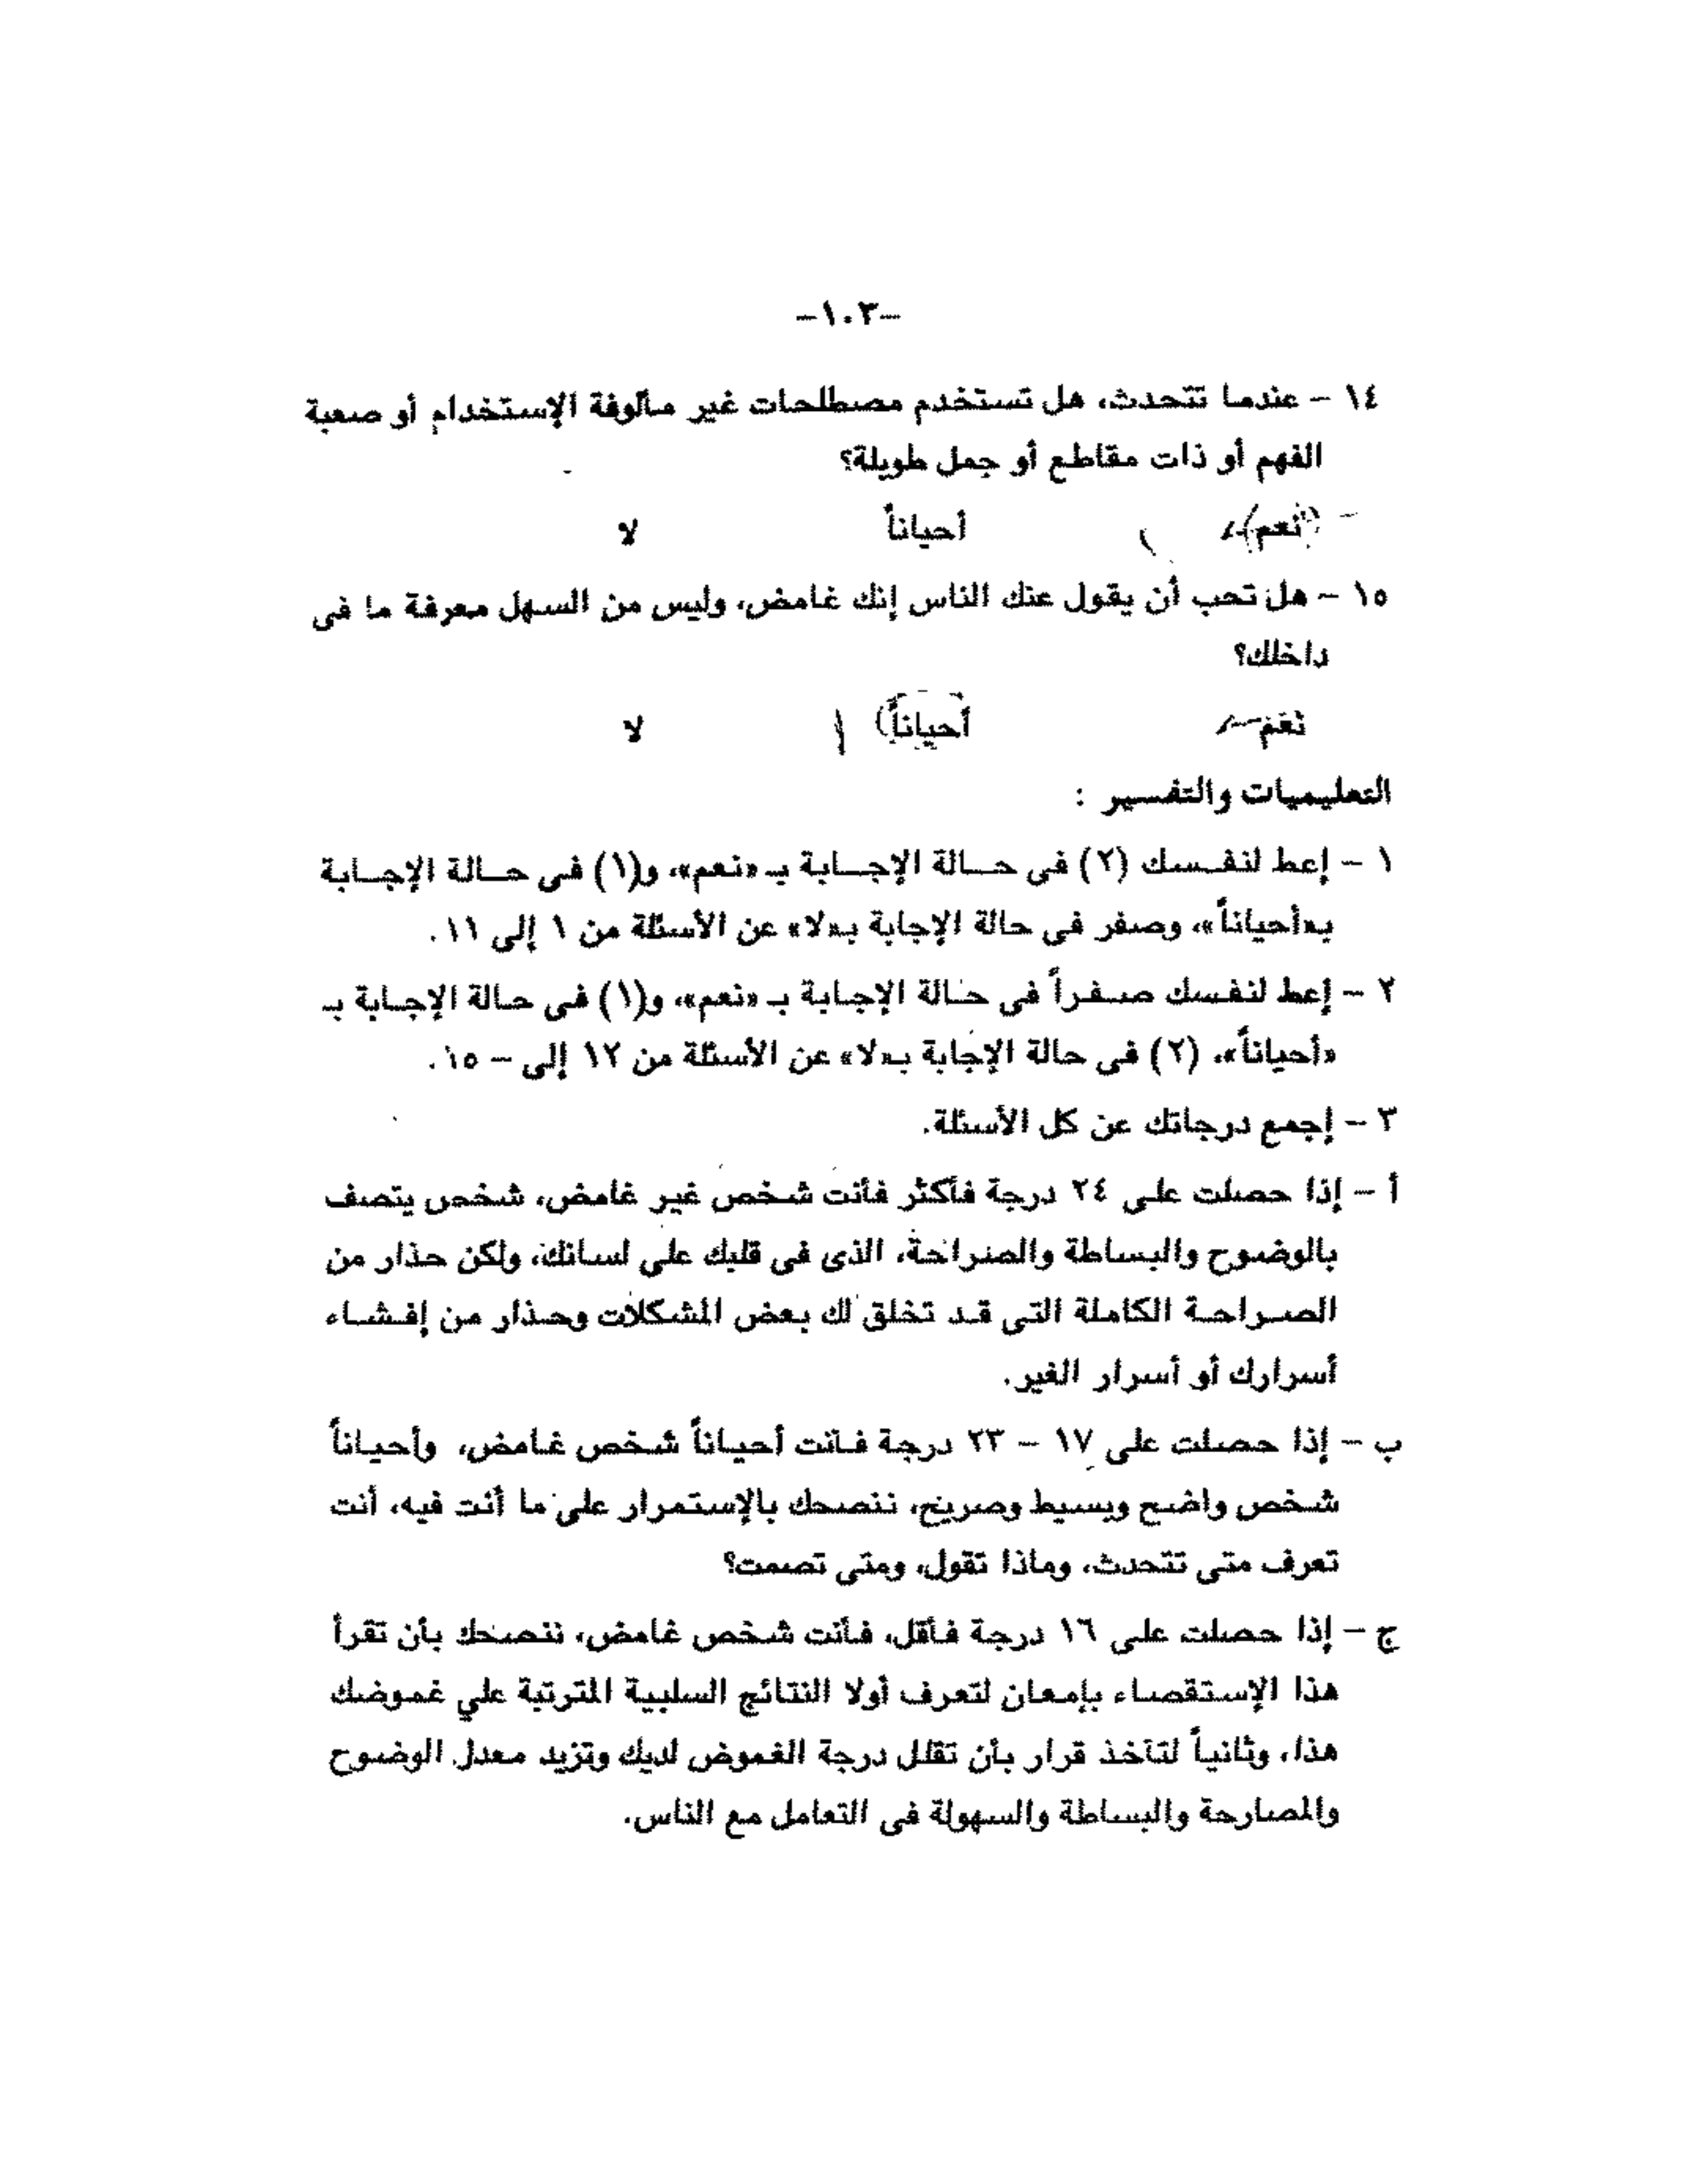 -١٠٣-
١٤ - عندما تتحدث، هل تستخدم مصطلحات غير مألوفة الإستخدام أو صعبة
الفهم أو ذات مقاطع أو جمل طويلة؟
نعم أحياناً لا
١٥ - هل تحب أن يقول عنك الناس إنك غامض، وليس من السهل معرفة ما فى
داخلك؟
نعم أحياناً لا
التعليميات والتفسير :
١ - إعط لنفسك (٢) فى حالة الإجابة بـ «نعم»، و(١) فى حالة الإجابة
بـ«أحياناً»، وصفر فى حالة الإجابة بـ«لا» عن الأسئلة من ١ إلى ١١.
٢ - إعط لنفسك صفراً فى حالة الإجابة بـ «نعم»، و(١) فى حالة الإجابة بـ
«أحياناً»، (٢) فى حالة الإجابة بـ«لا» عن الأسئلة من ١٢ إلى - ١٥.
٣ - إجمع درجاتك عن كل الأسئلة.
أ - إذا حصلت على ٢٤ درجة فأكثر فأنت شخص غير غامض، شخص يتصف
بالوضوح والبساطة والصراحة، الذى فى قلبك على لسانك، ولكن حذار من
الصراحة الكاملة التى قد تخلق لك بعض المشكلات وحذار من إفشاء
أسرارك أو أسرار الغير.
ب - إذا حصلت على ١٧ - ٢٣ درجة فأنت أحياناً شخص غامض، وأحياناً
شخص واضح وبسيط وصريح، ننصحك بالإستمرار على ما أنت فيه، أنت
تعرف متى تتحدث، وماذا تقول، ومتى تصمت؟
ج - إذا حصلت على ١٦ درجة فأقل، فأنت شخص غامض، ننصحك بأن تقرأ
هذا الإستقصاء بإمعان لتعرف أولا النتائج السلبية المترتبة علي غموضك
هذا، وثانياً لتأخذ قرار بأن تقلل درجة الغموض لديك وتزيد معدل الوضوح
والمصارحة والبساطة والسهولة فى التعامل مع الناس.